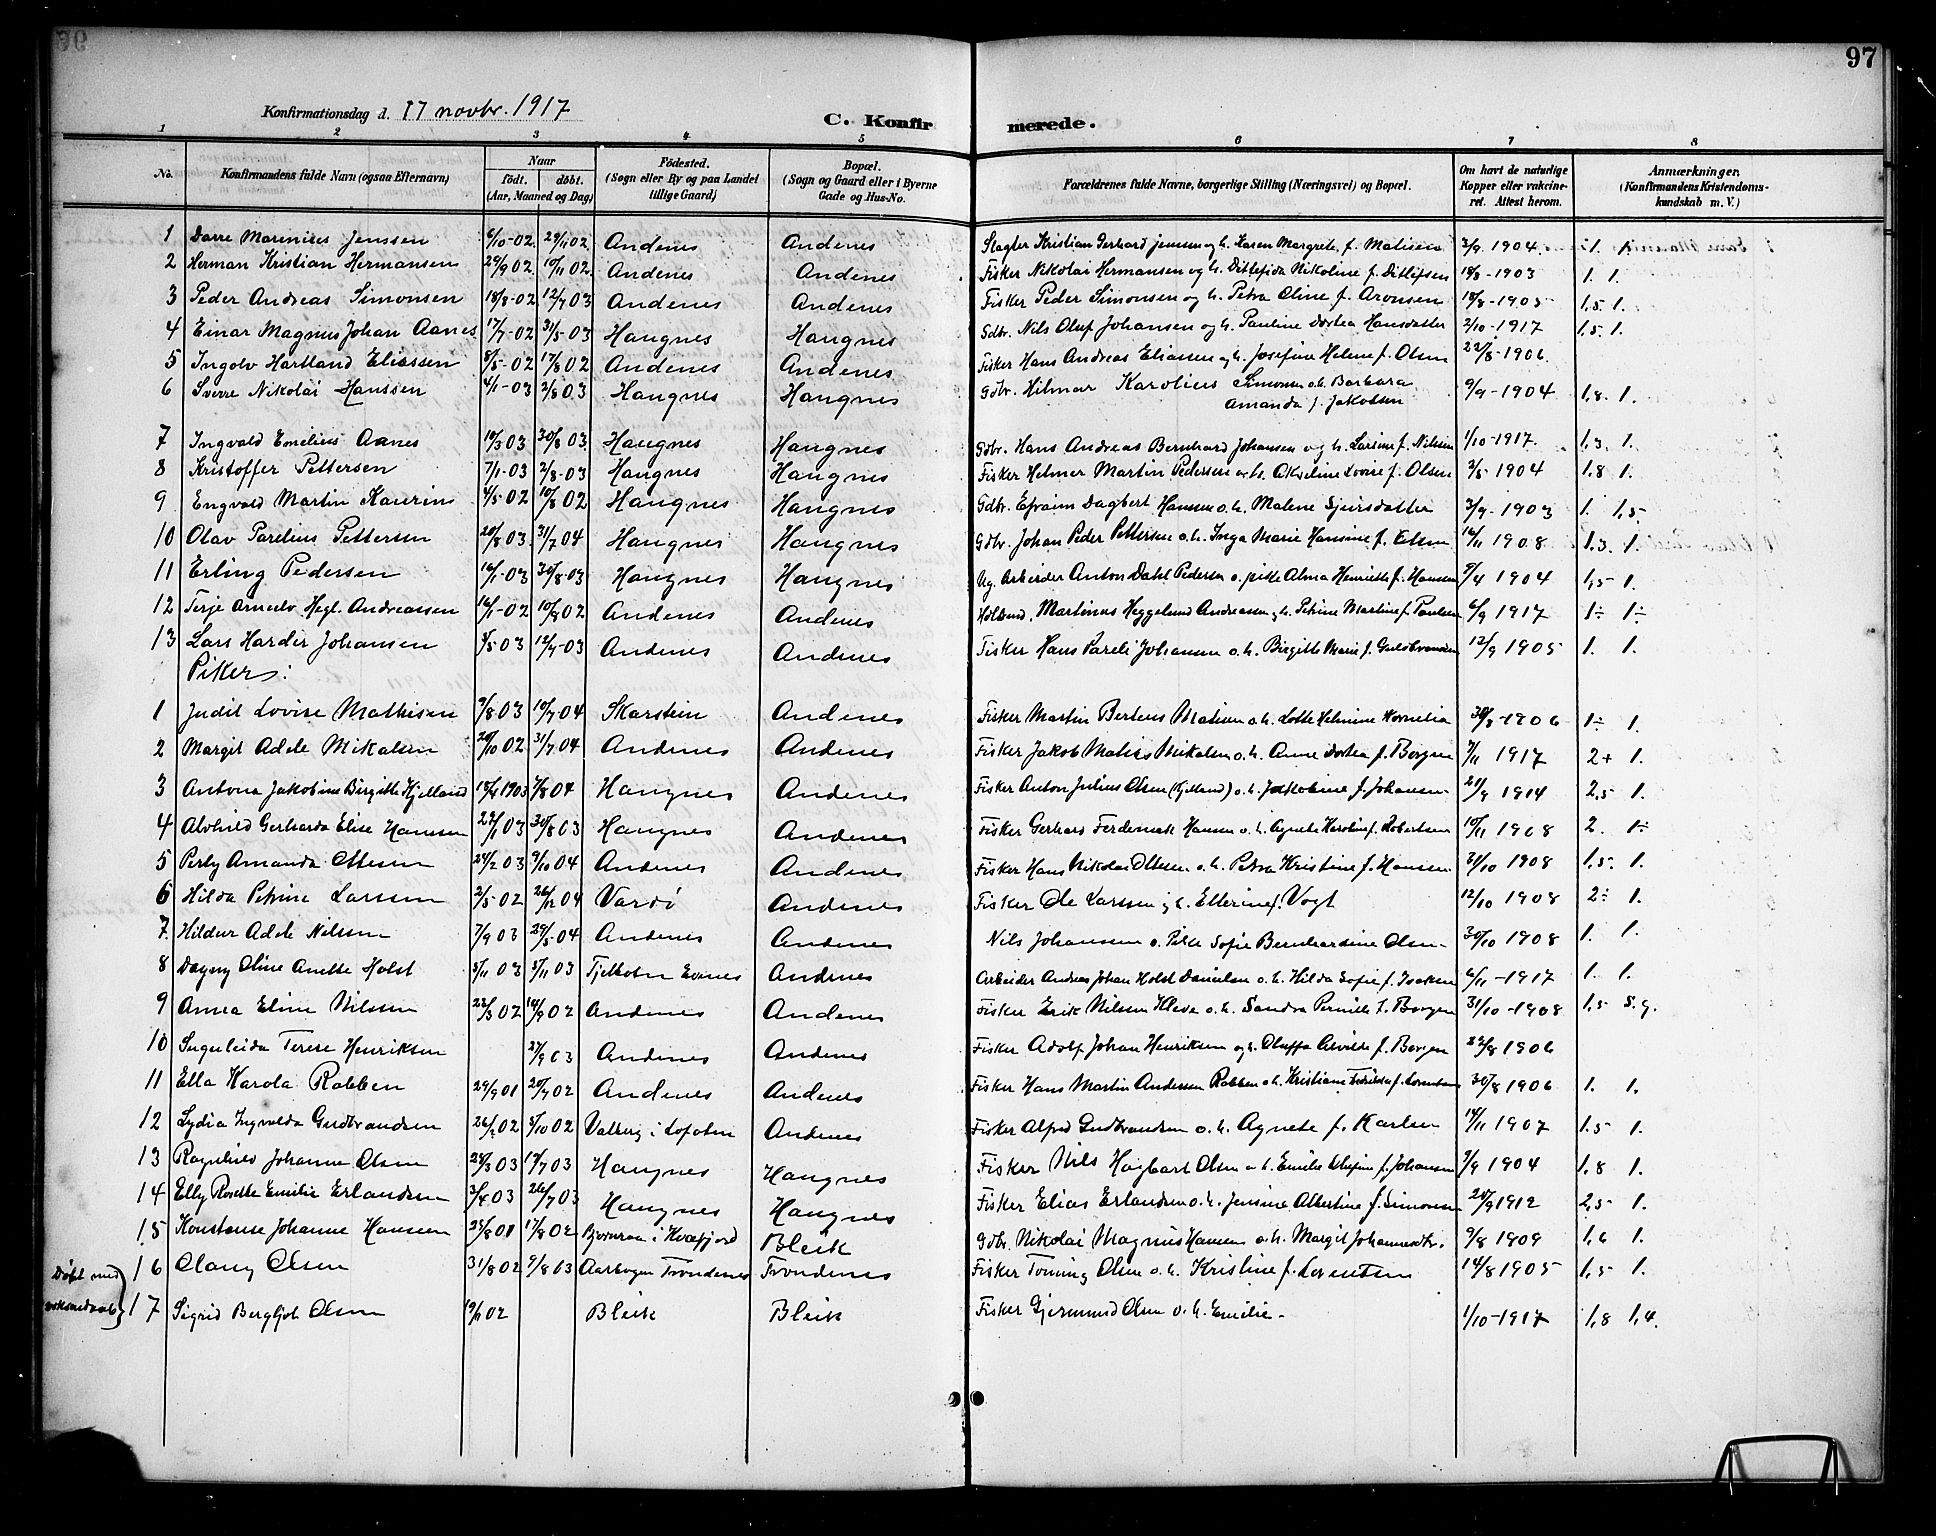 97
Konfirmationsdag d. 17 novbr. 1917
C. Konfirmerede.
1 2 3 4 5 6 7 8
No. Konfirmandens fulde Navn (ogsaa Efternavn) Naar født. døbt. (Aar, Maaned og Dag) Födested. (Sogn eller By og paa Landet tillige Gaard) Bopæl. (Sogn og Gaard eller i Byerne Gade og Hus-No. Forældrenes fulde Navne, borgerlige Stilling (Næringsvei) og Bopæl. Om havt de naturlige Kopper eller vakcineret. Attest herom. Anmærkninger. (Konfirmandens Kristendomskundskab m. V.)
1 Marinius Jenssen 6/10-02. 29/11 02. Andenes Andenes Slagter Kristian Gerhard Jenssen og h. Karen Margrete f. Matisen 3/9 1904. 1. 1.
2 Herman Kristian Hermansen 29/9 02. 10/11 02. Andenes Andenes Fisker Nikolai Hermansen og h. Ditlefida Nikoline f. Ditlefsen 18/8-1903 1. 1.
3 Peder Andreas Simonsen 18/8-02 12/7 03 Andenes Andenes Fisker Peder Simonsen og h. Petra Oline f. Aronsen 18/8-1905 1,5 1.
4 Einar Magnus Johan Aanes 17/7-02 31/5-03 Haugnes Haugnes Gdbr. Nils Oluf Johansen og h. Pauline Dortea Hansdatter 2/10-1917 1,5 1.
5 Ingolv Hartland Eliassen 8/5-02 17/8 02 Andenes Andenes Fisker Hans Andreas Eliassen og h. Josefine Helene f. Olsen 22/8-1906.
6 Sverre Nikolai Hanssen 4/1-03 2/8 03 Haugnes Haugnes Gdbr. Hilmar Karolius Simonsen o.h. Barbara Amanda f. Jakobsen 9/9-1904 1,8. 1.
7 Ingvald Emelius Aanes 19/3 03 30/8 03. Haugnes Haugnes Gdbr. Hans Andreas Bernhard Johansen og h. Larsine f. Nilsen 1/10-1917. 1,3 1.
8 Kristoffer Pettersen 7/1-03 2/8-03 Haugnes Haugnes Fisker Helmer Martin Pedersen o.h. Lovise f. Olsen 3/5 1904 1.8 1.
9 Engvald Martin 4/5-02 10/8 02 Haugnes Haugnes Gdbr. Efraim Dagbert Hansen o.h. Malene Sjursdatter 3/9-1903 1. 1,5
10 Olav Parelius Pettersen 20/8 03. 31/7 04 Haugnes Haugnes Gdbr. Johan Peder Pettersen o.h. Inga Marie Hansine f. 16/11 1908 1.3. 1.
11 Erling Pedersen 16/1-03 30/8-03 Haugnes Haugnes Ug. Arbeider Anton Dahl Pedersen o. pike Alma Henriette f. Hansen 9/4 1904 1,5 1.
12 Terje Hegl. Andreassen 16/1-02 10/8 02 Andenes Andenes Martinus Heggelund Andreassen og h. Petrine Martine f. Paulsen 6/9 1917 1÷ 1÷
13 Lars Harder Johansen 3/5 03 12/7-03 Andenes Andenes Fisker Hans Pareli Johansen o.h. Birgitte Marie f. Guldbrandsen 12/9 1905 1. 1.
Piker:
1 Judit Lovise Mathisen 9/8 03 10/7 04 Skarstein Andenes Fisker Martin Berteus Matisen o.h. Lotte Helmine Kornelia 30/8-1906 1÷ 1.
2 Margit Adele Mikalsen 20/10 02 31/7 04 Andenes Andenes Fisker Jakob Matias Mikalsen o.h. Anne Dortea f. Borgen 7/11 1917 2+ 1.
3 Antona Jakobine Birgitte Kjelland 18/4 1903 7/8 04 Haugnes Andenes Fisker Anton Julius Olsen (Kjelland) o.h. Jakobine f. Johansen 21/9 1914 2,5 1.
4 Alvhild Gerharda Elise Hansen 22/1 03 30/8 03 Haugnes Andenes Fisker Gerhard Ferdemak Hansen o.h. Agnete Karoline f. Robertsen 10/11 1908 2. 1÷
5 Perly Amanda Ottesen 24/2 03 9/10 04 Andenes Andenes Fisker Hans Nikolai Ottesen o.h. Petra Kristine f. Hansen 31/10 1908 1,5 1.
6 Hilda Petrine Larssen 2/5 02 26/12 04 Vardö Andenes Fisker Ole Larssen og h. Ellerine f. Vogt 12/10 1908 2÷ 1.
7. Hildur Adele Nilssen 7/9 03 29/5-04 Andenes Andenes Nils Johansen o. Pike Sofie Bernhardine Olsen 30/10 1908 1. 1.
8 Dagny Oline Anette Holst 3/11 03 3/11 03 Tjelbotn Evenes Andenes Arbeider Andreas Johan Holst Danielsen o.h. Hilda Sofie f. Isaksen 6/11-1917 1. 1.
9 Anna Eline Nilssen 22/3 02 14/9 02 Andenes Andenes Fisker Erik Nilssen Kleva o.h. Sandra Pernille f. Borgen 31/10-1908 1,5 S.g.
10 Terese Henriksen 27/9 03 Andenes Andenes Fisker Adolf Johan Henriksen og h. Oluffa Alvilde f. Borgen 22/8 1906
11 Ella Karola Robben 29/9 01 20/7 02 Andenes Andenes Fisker Hans Martin Andersen Robben o.h. Kristiane Fredrikke f. Lorentsen 30/8 1906 1. 1.
12 Lydia Ingvalda Gudbrandsen 26/2 02 5/10 02 Valberg i Lofoten Andenes Fisker Alfred Gudbrandsen o.h. Agnete f. Karlsen 14/11 1907 1.5 1.
13 Ragnhild Johanne Olsen 28/3 03 19/7 03 Haugnes Haugnes Fisker Nils Hagbart Olsen o.h. Emilie Olefine f. Johansen 7/9 1904 1,8 1.
14 Elly Rosette Emilie Erlandsen 3/4 03 26/7 03 Haugnes Haugnes Fisker Elias Erlandsen o.h. Jensine Albertine f. Simonsen 20/9 1912 2,5 1.
15 Konstanse Johanne Hansen 23/8 01 17/8 02 Bjørnraa i Kvæfjord Bleik Gdbr. Nikolai Magnus Hansen o.h. Margit Johannesdtr. 9/8 1909 1,6 1.
Døbt med 16 Olaug Olsen 31/8 02 9/8 03 Trondenes Trondenes Fisker Toming Olsen o.h. Kristine f. Lorentsen 14/8 1905 1,5 1.
17 Sigrid Bergljot Olsen 19/11 02 Bleik Bleik Fisker Gjermund Olsen o.h. Emilie 1/10-1917 1,8 1,4.